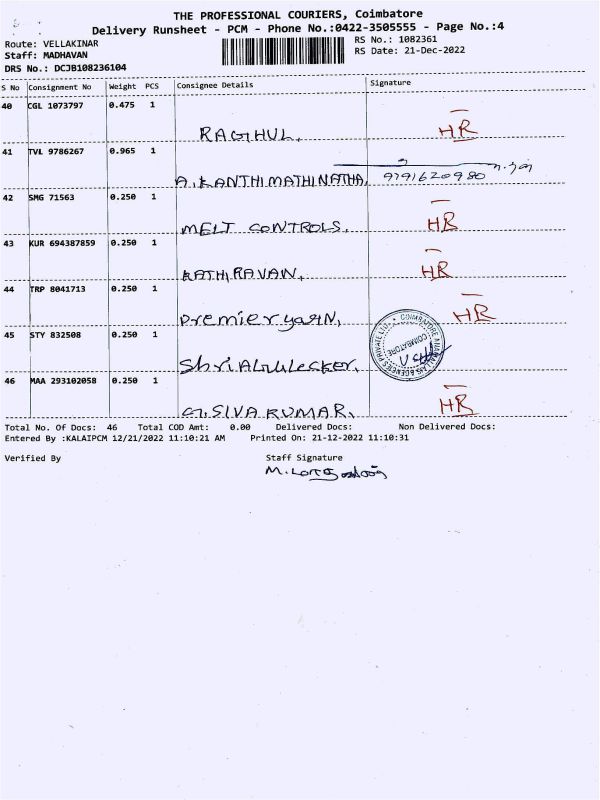 THE PROFESSIONAL COURIERS, Coimbatore
Delivery Runsheet - PCM - Phone No.:0422-3505555 - Page No.:4
Route: VELLAKINAR
RS No.: 1082361
Staff: MADHAVAN
RS Date: 21-Dec-2022
DRS No.: DCJB108236104
S No Consignment No Weight PCS Consignee Details Signature
40 CGL 1073797 0.475 1
RAGHUL. HR
41 TVL 9786267 0.965 1
A.KANTHIMATHINATHA. 9791620980
42 SMG 71563 0.250 1
MELT CONTROLS. HR
43 KUR 694387859 0.250 1
KATHIRAVAN. HR
44 TRP 8041713 0.250 1
Premier yarn, HR
45 STY 832508 0.250 1
COIMBATORE ANAMALLAIS AGENCIES PRIVATE LTD.
COIMBATORE
46 MAA 293102058 0.250 1
G.SIVA KUMAR. HR
Total No. Of Docs: 46 Total COD Amt: 0.00 Delivered Docs: Non Delivered Docs:
Entered By :KALAIPCM 12/21/2022 11:10:21 AM Printed On: 21-12-2022 11:10:31
Verified By Staff Signature